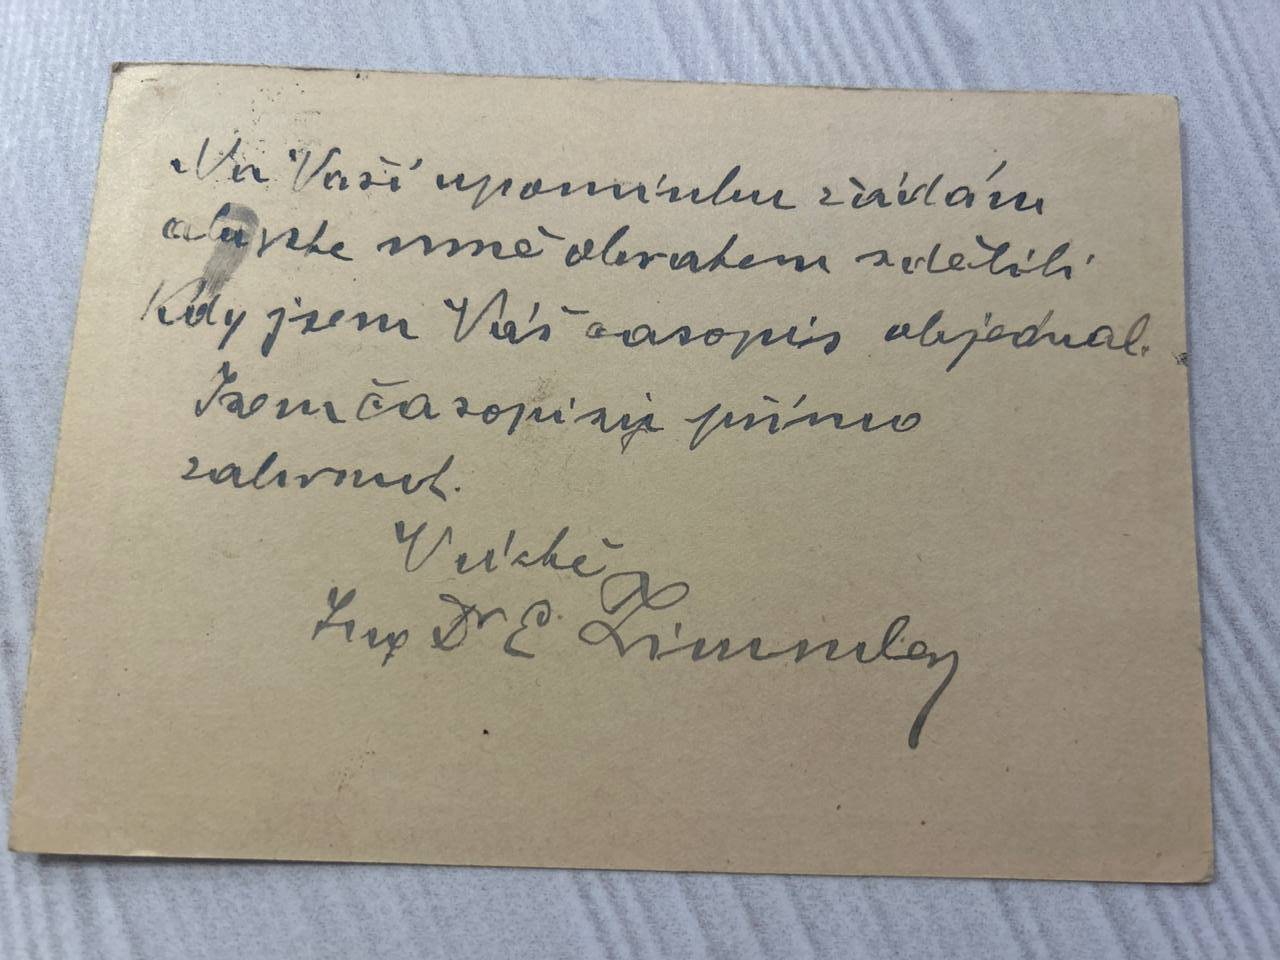 Na Vaší upomínku žádám
abyste mně obratem sdělili
Kdy jsem Váš časopis objednal.
Jsem časopisy přímo
zahrnut.
V úctě
Ing Dr E.